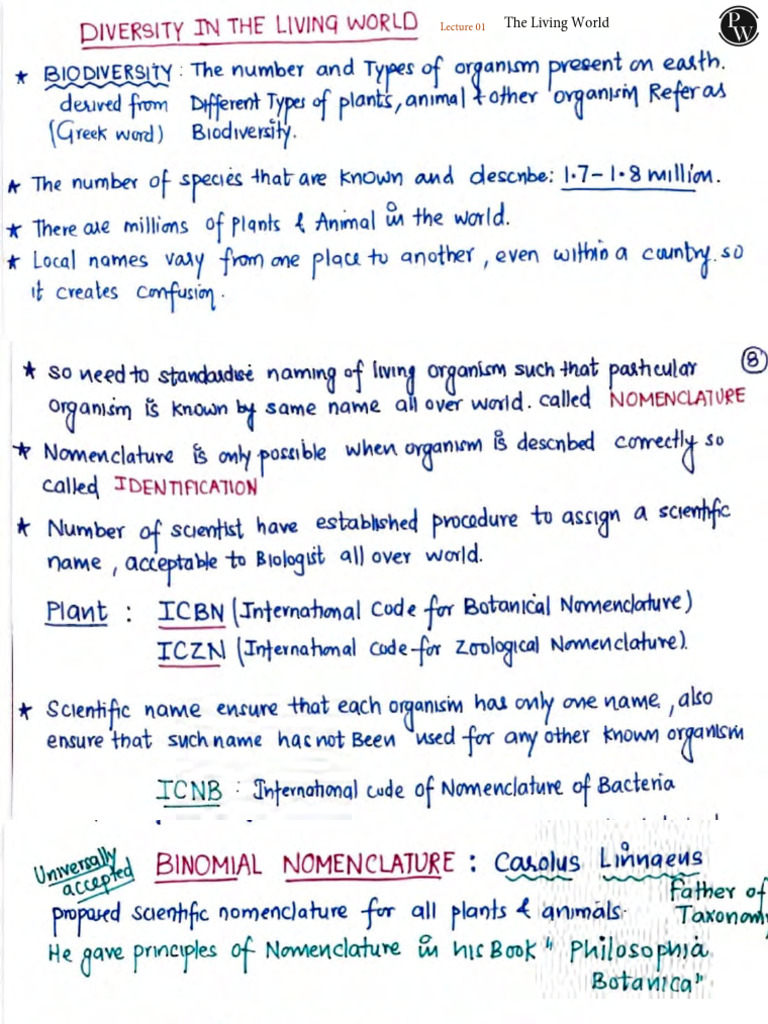 DIVERSITY IN THE LIVING WORLD Lecture 01 The Living World PW
★ BIODIVERSITY : The number and Types of organism present on earth.
derived from Different Types of plants, animal & other organism Refer as
(Greek word) Biodiversity.
★ The number of species that are known and describe: 1.7–1.8 million.
★ There are millions of plants & Animal in the world.
★ Local names vary from one place to another, even within a country. so
it creates confusion.
★ so need to standardise naming of living organism such that particular (8)
organism is known by same name all over world. called NOMENCLATURE
★ Nomenclature is only possible when organism is described correctly so
called IDENTIFICATION
★ Number of scientist have established procedure to assign a scientific
name, acceptable to Biologist all over world.
Plant : ICBN (International Code for Botanical Nomenclature)
ICZN (International Code for Zoological Nomenclature).
★ Scientific name ensure that each organism has only one name, also
ensure that such name has not Been used for any other known organism
ICNB : International code of Nomenclature of Bacteria
Universally
accepted
BINOMIAL NOMENCLATURE : Carolus Linnaeus
Father of
Taxonomy
proposed scientific nomenclature for all plants & animals.
He gave principles of Nomenclature in his Book " Philosophia
Botanica"